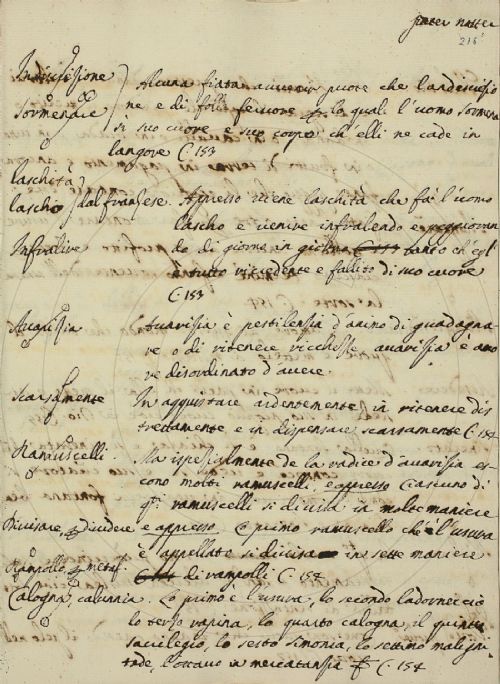 pater noster
216
Indiscrisione
Alcuna fiata avviene
puote che l'andescrisio
Sormenare
ne e di folli fervore, la quali l'uomo sormena
si suo cuore e suo corpo ch'elli ne cade in
langore C. 153
laschità
lascho dal franzese. Apresso viene laschità che fa l'uomo
lascho e venire infralendo e peggioran
Infralire do di giorno in giorno C 153 tanto ch'egli
è tutto riccedente e fallito di suo cuore
C 153
Avarisia Avarisia è pestilensia d'animo di guadagna
re, o di ritenere ricchesse, avarisia è amo
re disordinato d'avere.
Scarsamente In aqquistare ardentemente in ritenere dis
tretamente e in dispensare scarsamente C. 154
Ramuscelli. Ma ispesialmente de la radice d'avarisia es
cono molti ramuscelli, e apresso ciascuno di
qti ramuscelli si divisa in molte maniere
Divisare, dividere e appresso. Lo primo ramuscello che l'usura
è appellato si divisa in sette maniere
Rampollo metaf. C. 154 di rampolli C. 154
Calogna, calunnia. Lo primo è l'usura, lo secondo ladroneccio
lo terso rapina, lo quarto calogna il quinto
sacrilegio, lo sesto simonia, lo settimo mali
l'ottavo in mercatansia C. 154